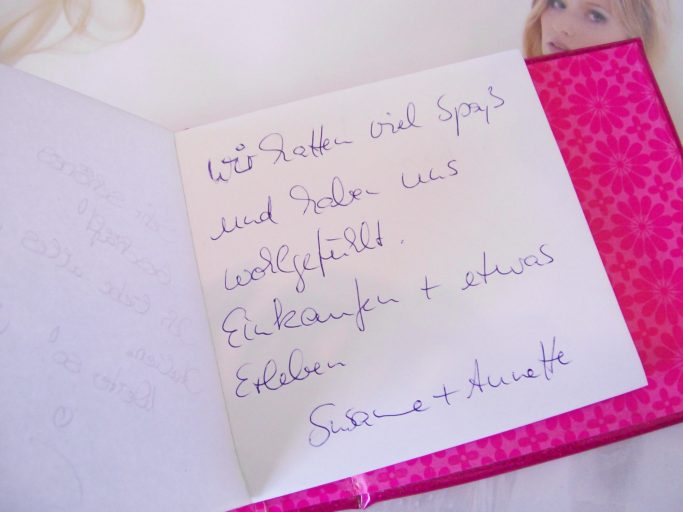 Wir hatten viel Spaß
und haben uns
wohlgefühlt.
Einkaufen + etwas
Erleben
Susanne + Annette